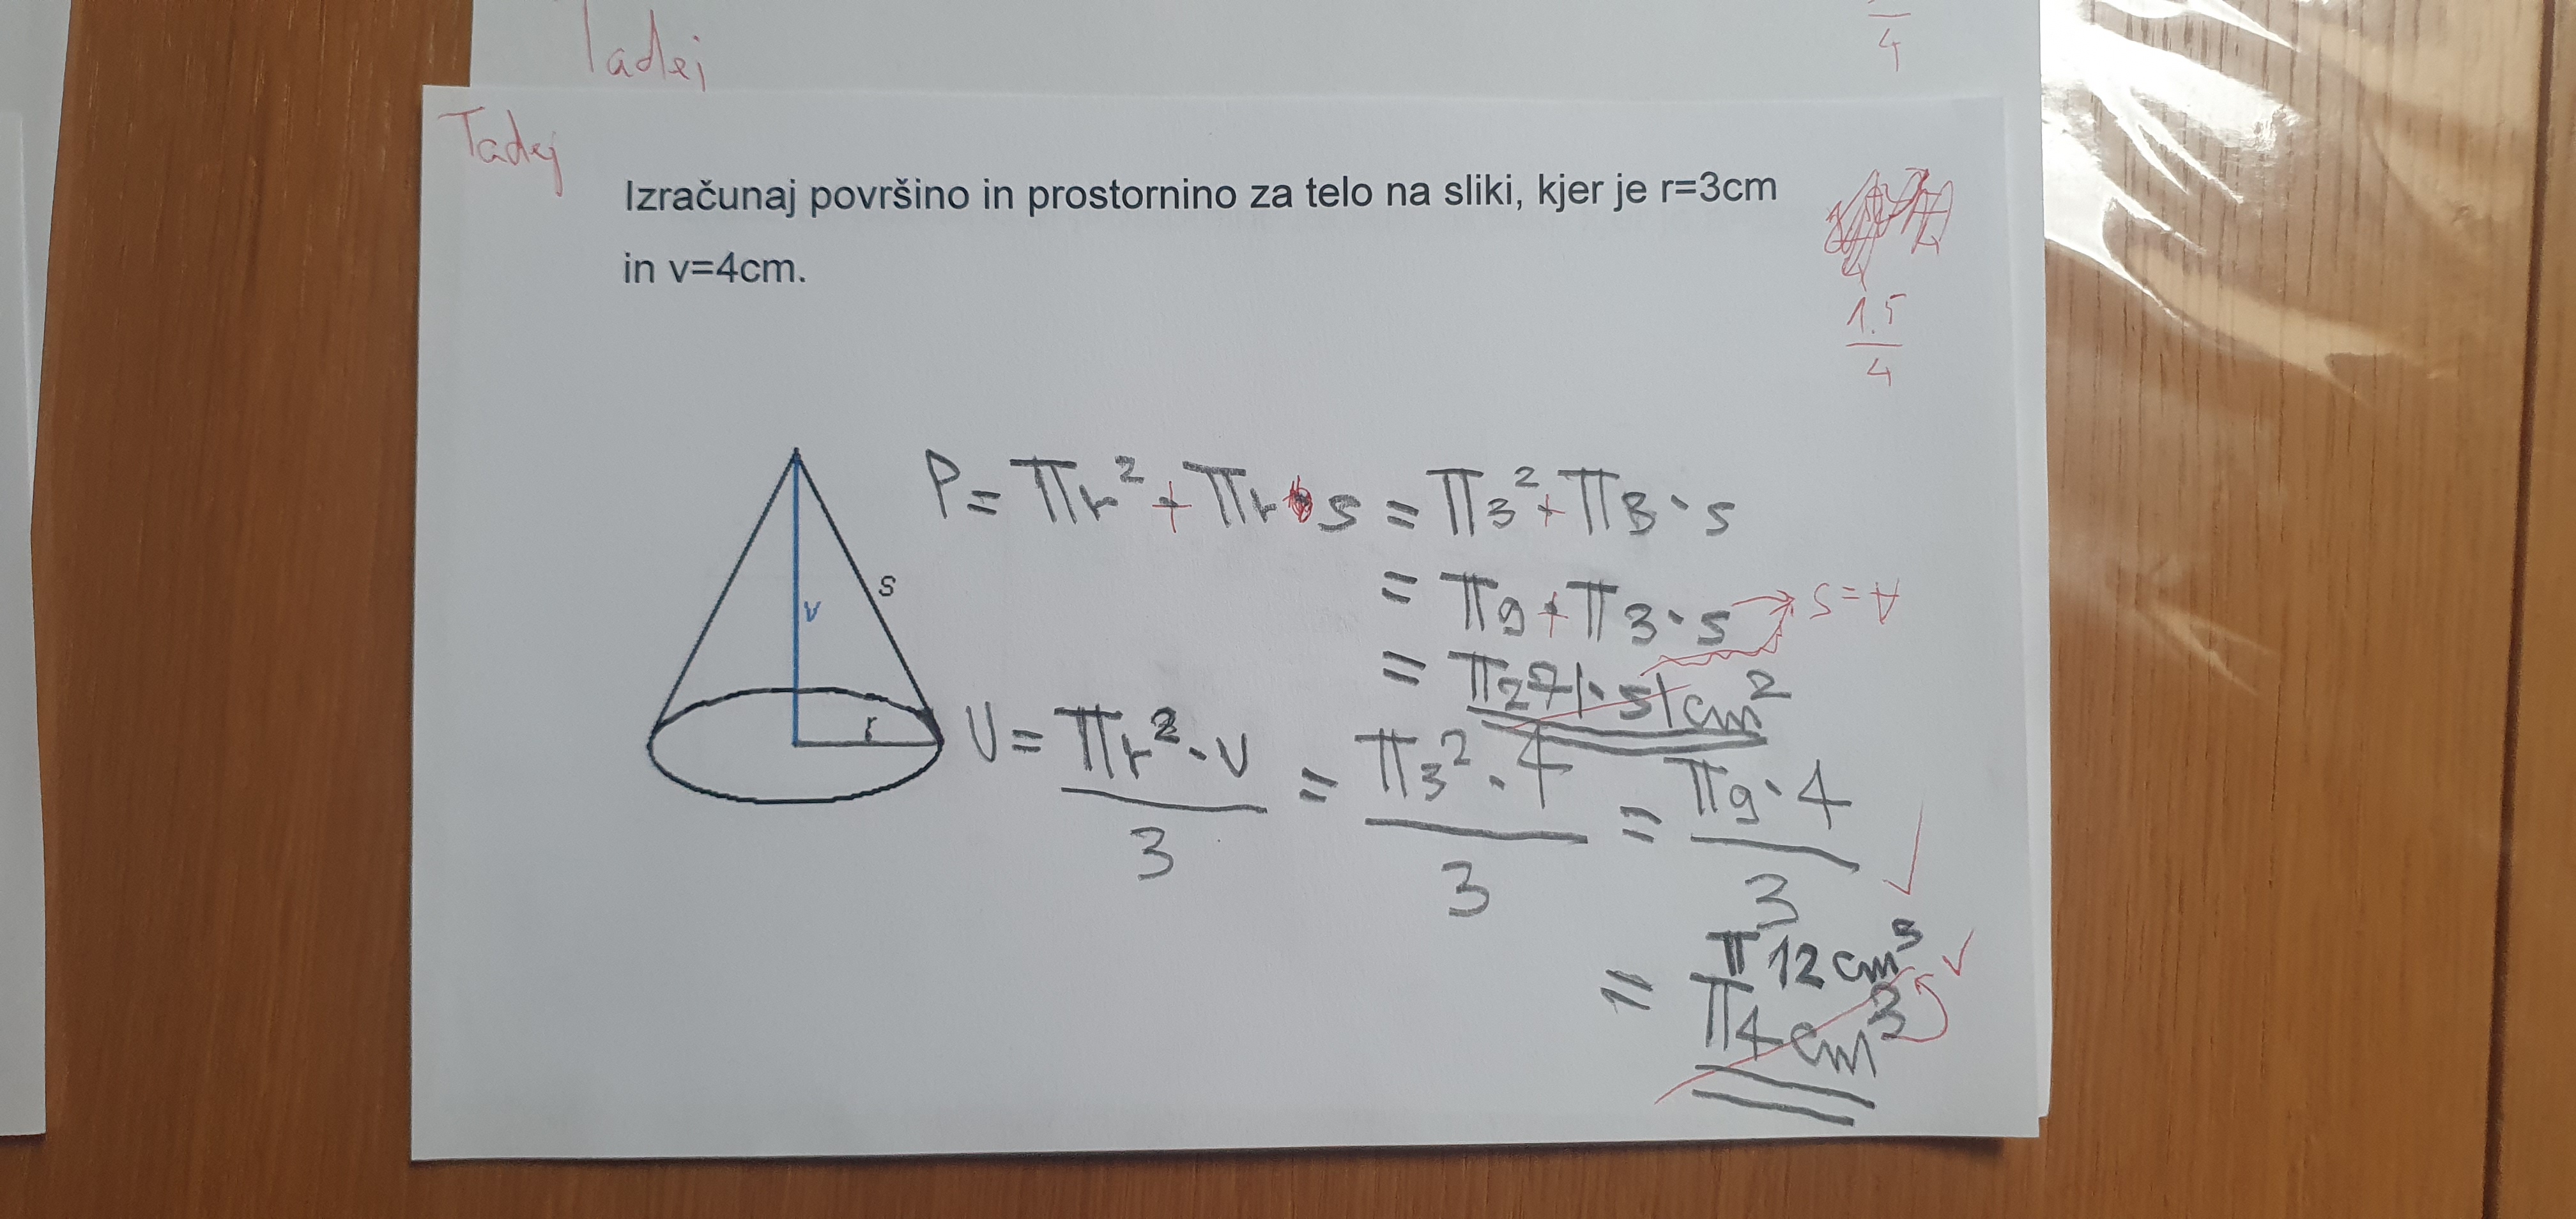 Tadej
4
Tadej
Izračunaj površino in prostornino za telo na sliki, kjer je r=3cm
in v=4cm.
1.5
4
P = πr² + πr s = π3² + π3 · s
= π9 + π3 · s → s = √
= π27 · s cm²
s
v
r
V = πr² · v / 3 = π3² · 4 / 3 = π9 · 4 / 3
= π12 cm³
π4 cm³